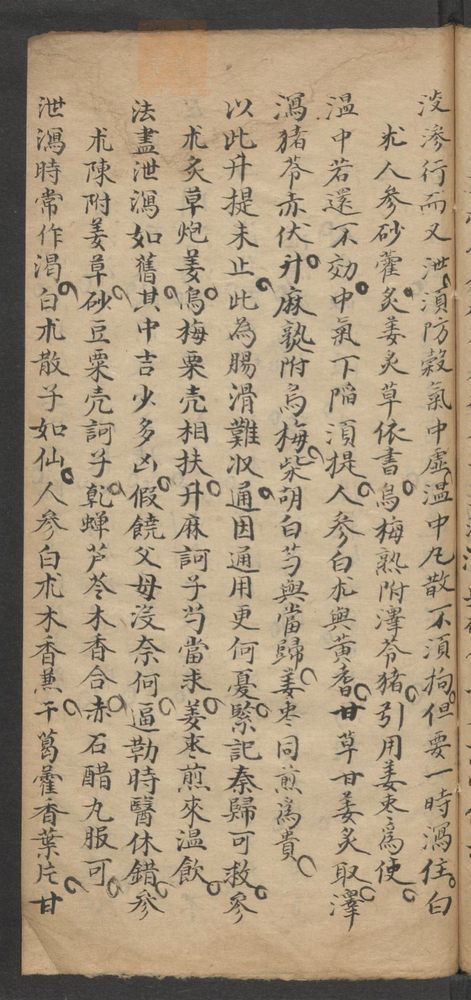 没滲行而又泄須防穀氣中虛温中丸散不須拘但要一時瀉住白
朮人參砂藿炙姜炙草依書烏梅熟附澤苓猪引用姜枣為使
温中若還不効中氣下陷須提人參白朮與黃耆甘草甘姜炙取澤
瀉猪苓赤伏升麻熟附烏梅柴胡白芍與當歸姜枣同煎為貴
以此升提未止此為腸滑難收通因通用更何憂緊記秦歸可救參
朮炙草炮姜烏梅粟壳相扶升麻訶子芍當求姜枣煎來温飲
法盡泄瀉如舊其中吉少多凶假饒父母沒奈何逼勒時醫休錯參
朮陳附姜草砂豆粟壳訶子乾蟬芦苓木香合赤石醋丸服可
泄瀉時常作渴白朮散子如仙人參白朮木香兼干葛藿香葉片甘